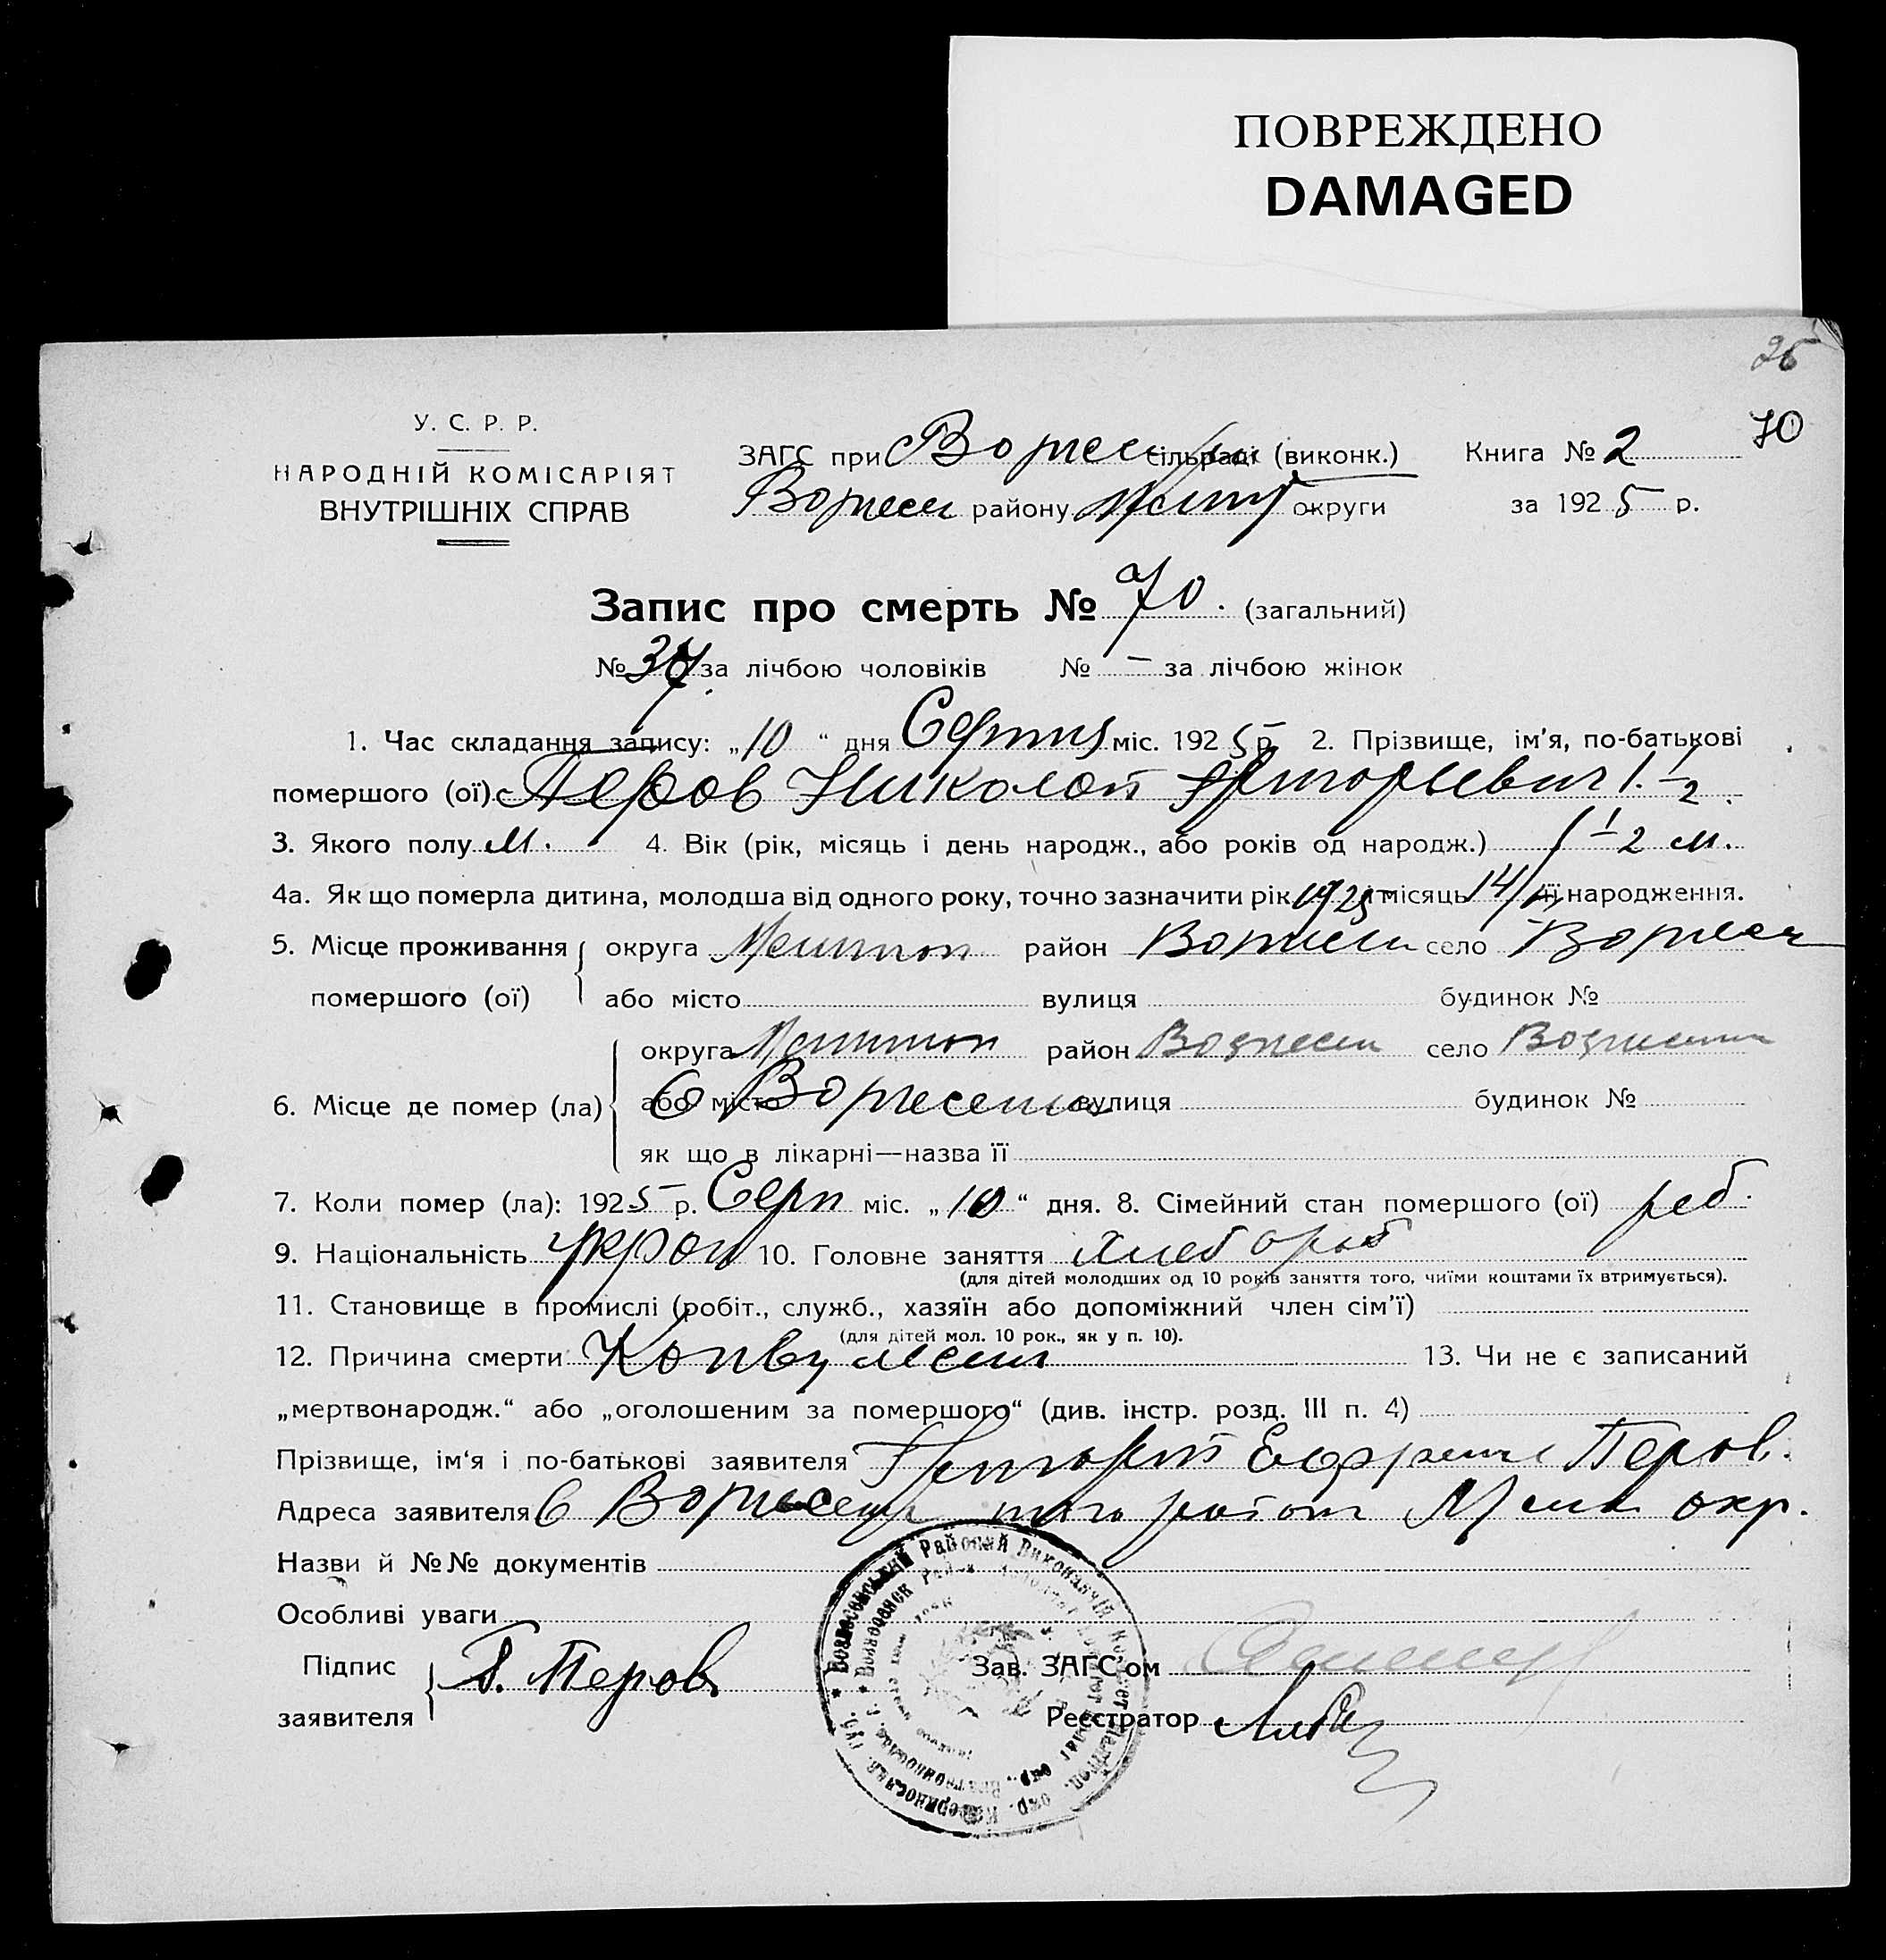 ПОВРЕЖДЕНО
DAMAGED
26
70
У. С. Р. Р.
НАРОДНІЙ КОМІСАРІЯТ
ВНУТРІШНІХ СПРАВ
ЗАГС при Вознесен сільраді (виконк.) Книга № 2
Вознесен району Меліт округи за 1925 р.
Запис про смерть № 70. (загальний)
№ 37 за лічбою чоловіків № – за лічбою жінок
1. Час складання запису: „10“ дня міс. 1925 р. 2. Прізвище, ім’я, по-батькові
помершого (ої) Перов Николай Григорьевич 1 1/2.
3. Якого полу М. 4. Вік (рік, місяць і день народж., або років од народж.) 1 1/2 м.
4а. Як що померла дитина, молодша від одного року, точно зазначити рік 1925 і місяць 14/ її народження.
5. Місце проживання округа Мелитоп район Вознесен село Вознесен
помершого (ої) або місто вулиця будинок №
округа Мелитоп район Вознесен село Вознесен
6. Місце де помер (ла) або місто С Вознесенка вулиця будинок №
як що в лікарні—назва її
7. Коли помер (ла): 1925 р. Серп міс. „10“ дня. 8. Сімейний стан помершого (ої) реб.
9. Національність 10. Головне заняття Хлебороб
(для дітей молодших од 10 років заняття того, чиїми коштами їх втримується).
11. Становище в промислі (робіт., служб., хазяїн або допоміжний член сім’ї)
(для дітей мол. 10 рок., як у п. 10).
12. Причина смерти Конвулсии 13. Чи не є записаний
„мертвонародж.“ або „оголошеним за помершого“ (див. інстр. розд. III п. 4)
Прізвище, ім‘я і по-батькові заявителя Григорий Перов.
Адреса заявителя С Вознесен того район Мели окр.
Назви й №№ документів
Особливі уваги
Підпис Г. Перов Зав. ЗАГС’ом
заявителя Реєстратор